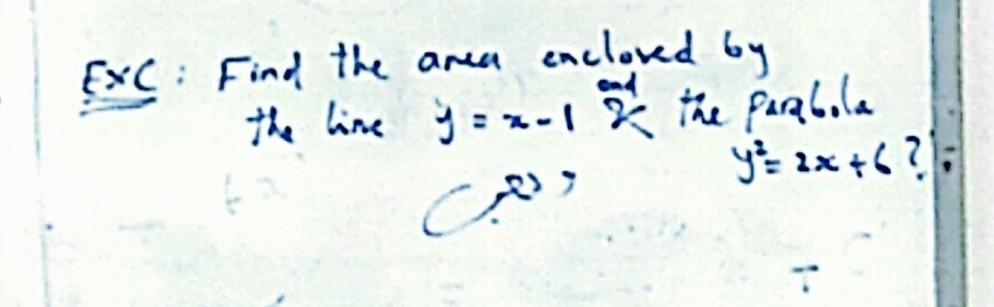 EXC : Find the area enclosed by
the line y = x - 1 and the parabola
y² = 2x + 6 ?